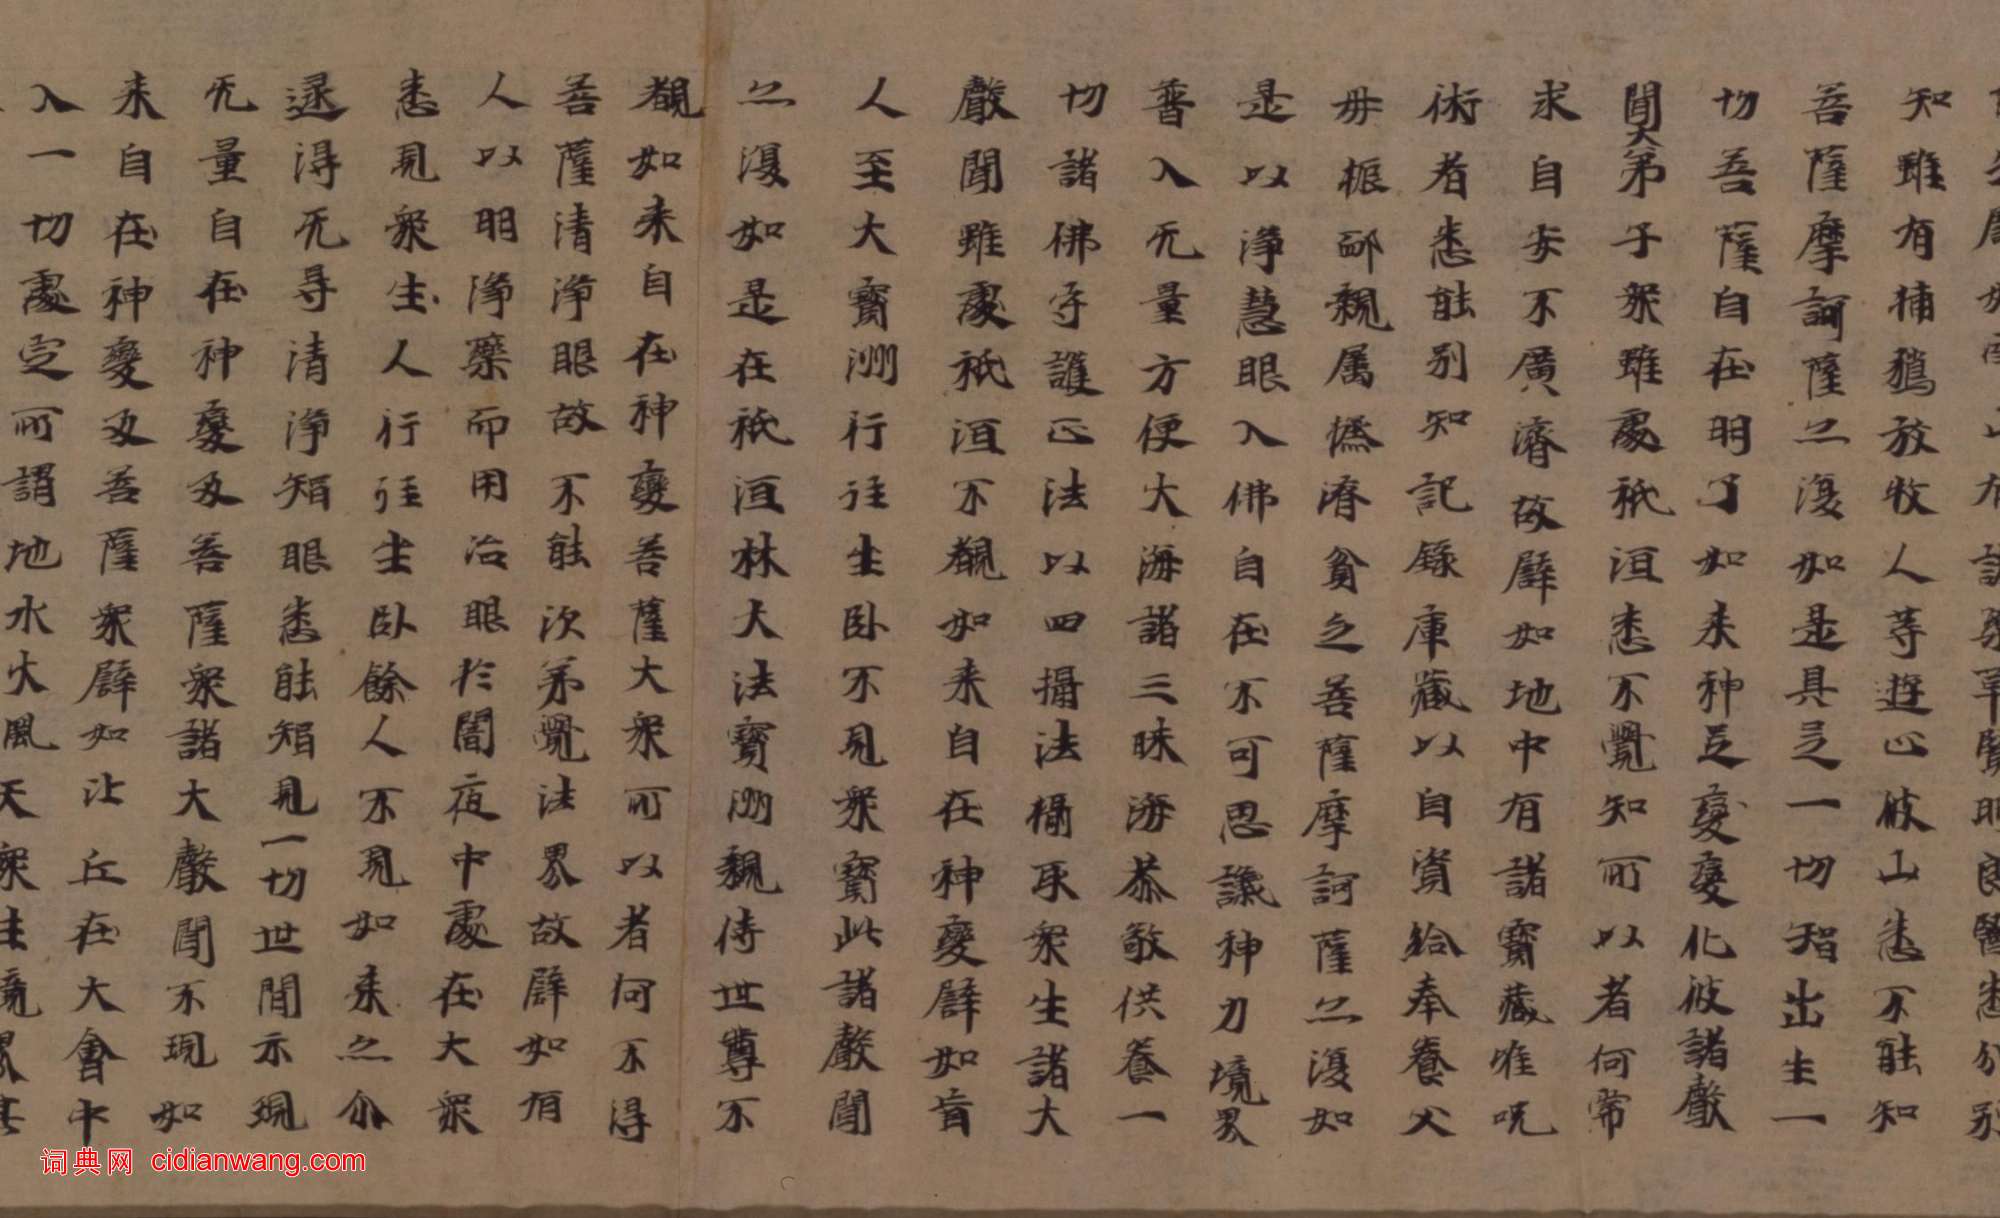 如雪山有諸藥草賢明良醫悉分別
知雖有捕獵放牧人等遊止彼山悉不能知
菩薩摩訶薩亦復如是具足一切智出生一
切菩薩自在明了如來神足變變化彼諸聲
聞大弟子眾雖處祇洹悉不覺知所以者何常
求自安不廣濟故譬如地中有諸寶藏唯呪
術者悉能別知記錄庫藏以自資給奉養父
母振卹親屬攝濟貧乏菩薩摩訶薩亦復如
是以淨慧眼入佛自在不可思議神力境界
普入无量方便大海諸三昧海恭敬供養一
切諸佛守護正法以四攝法攝取眾生諸大
聲聞雖處祇洹不覩如來自在神變譬如盲
人至大寶洲行住坐卧不見眾寶此諸聲聞
亦復如是在祇洹林大法寶洲親侍世尊不
覩如來自在神變菩薩大眾所以者何不得
菩薩清淨眼故不能次第覺法界故譬如有
人以明淨藥而用治眼於闇夜中處在大眾
悉見眾生人行住坐卧餘人不見如來亦尒
逮得无㝵清淨智眼悉能智見一切世間示現
无量自在神變及菩薩眾諸大聲聞不現如
來自在神變及菩薩眾譬如比丘在大會中
入一切處定所謂地水火風天眾生境界其
词典网 cidianwang.com